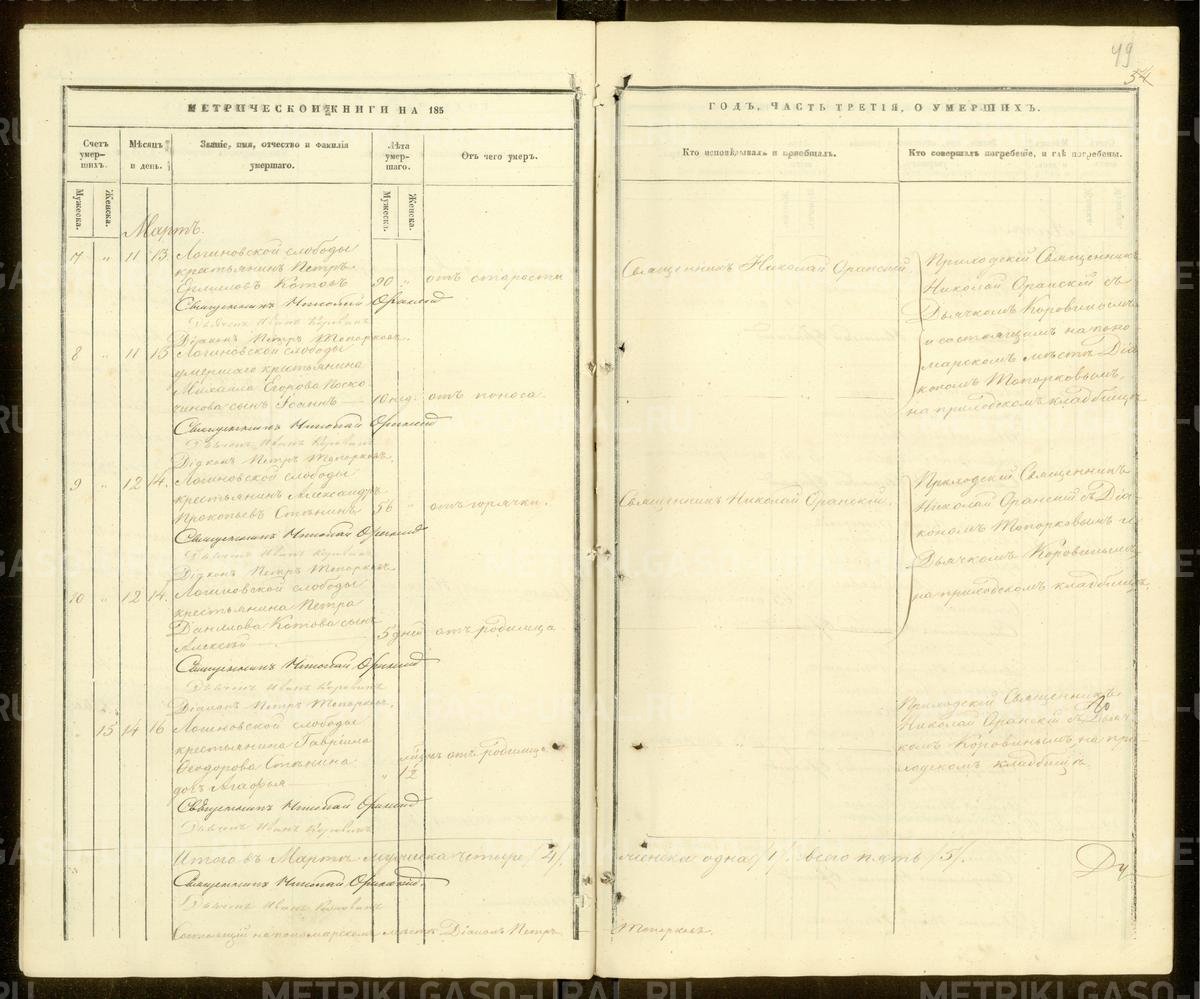 49
54
МЕТРИЧЕСКОЙ КНИГИ НА 185
ГОДЪ, ЧАСТЬ ТРЕТІЯ, О УМЕРШИХЪ.
Счетъ умер-шихъ.
Мѣсяцъ и день.
Званіе, имя, отчество и фамилія умершаго.
Лѣта умер-шаго.
Отъ чего умеръ.
Кто исповѣдывалъ и пріобщалъ.
Кто совершалъ погребеніе, и гдѣ погребены.
Мужеска.
Женска.
Мужеска.
Женска.
Мартъ.
7 „ 11 13 Логиновской слободы
крестьянинъ Петръ
Котовъ 90 „ отъ старости
Священникъ Николай Оранскій
Дьячекъ Иванъ Коровинъ
Діаконъ Петръ Топорковъ.
Священникъ Николай Оранскій.
Приходскій Священникъ
Николай Оранскій съ
Дьячкомъ Коровинымъ
и состоящимъ на поно-
марскомъ мѣстѣ Діа-
кономъ Топорковымъ,
на приходскомъ кладбищѣ
8 „ 11 13 Логиновской слободы
умершаго крестьянина
Михаила Егорова
сынъ Іоаннъ 10 нед. отъ поноса.
Священникъ Николай Оранскій
Дьячекъ Иванъ Коровинъ
Діаконъ Петръ Топорковъ.
9 „ 12 14. Логиновской слободы
крестьянинъ Александръ
Прокопьевъ 56 „ отъ горячки.
Священникъ Николай Оранскій
Дьячекъ Иванъ Коровинъ
Діаконъ Петръ Топорковъ
Священникъ Николай Оранскій.
Приходскій Священникъ
Николай Оранскій съ Діа-
кономъ Топорковымъ и
Дьячкомъ Коровинымъ
на приходскомъ кладбищѣ.
10 „ 12 14. Логиновской слободы
крестьянина Петра
Данилова Котова сынъ
Алексѣй 5 дней отъ родимца
Священникъ Николай Оранскій
Дьячекъ Иванъ Коровинъ
Діаконъ Петръ Топорковъ.
„ 15 14 16 Логиновской слободы
крестьянина Гавріила
Ѳеодорова
дочь Агафья „ 12 отъ родимца
Священникъ Николай Оранскій
Дьячекъ Иванъ Коровинъ
Приходскій Священникъ
Николай Оранскій съ Дьяч-
комъ Коровинымъ, на при-
ходскомъ кладбищѣ.
Итого въ Мартѣ мужеска четыре /4/. женска одна /1/. всего пять /5/.
Священникъ Николай Оранскій.
Дьячекъ Иванъ Коровинъ
Состоящій на пономарскомъ мѣстѣ Діаконъ Петръ Топорковъ.
Ду
METRIKI.GASO-URAL.RU